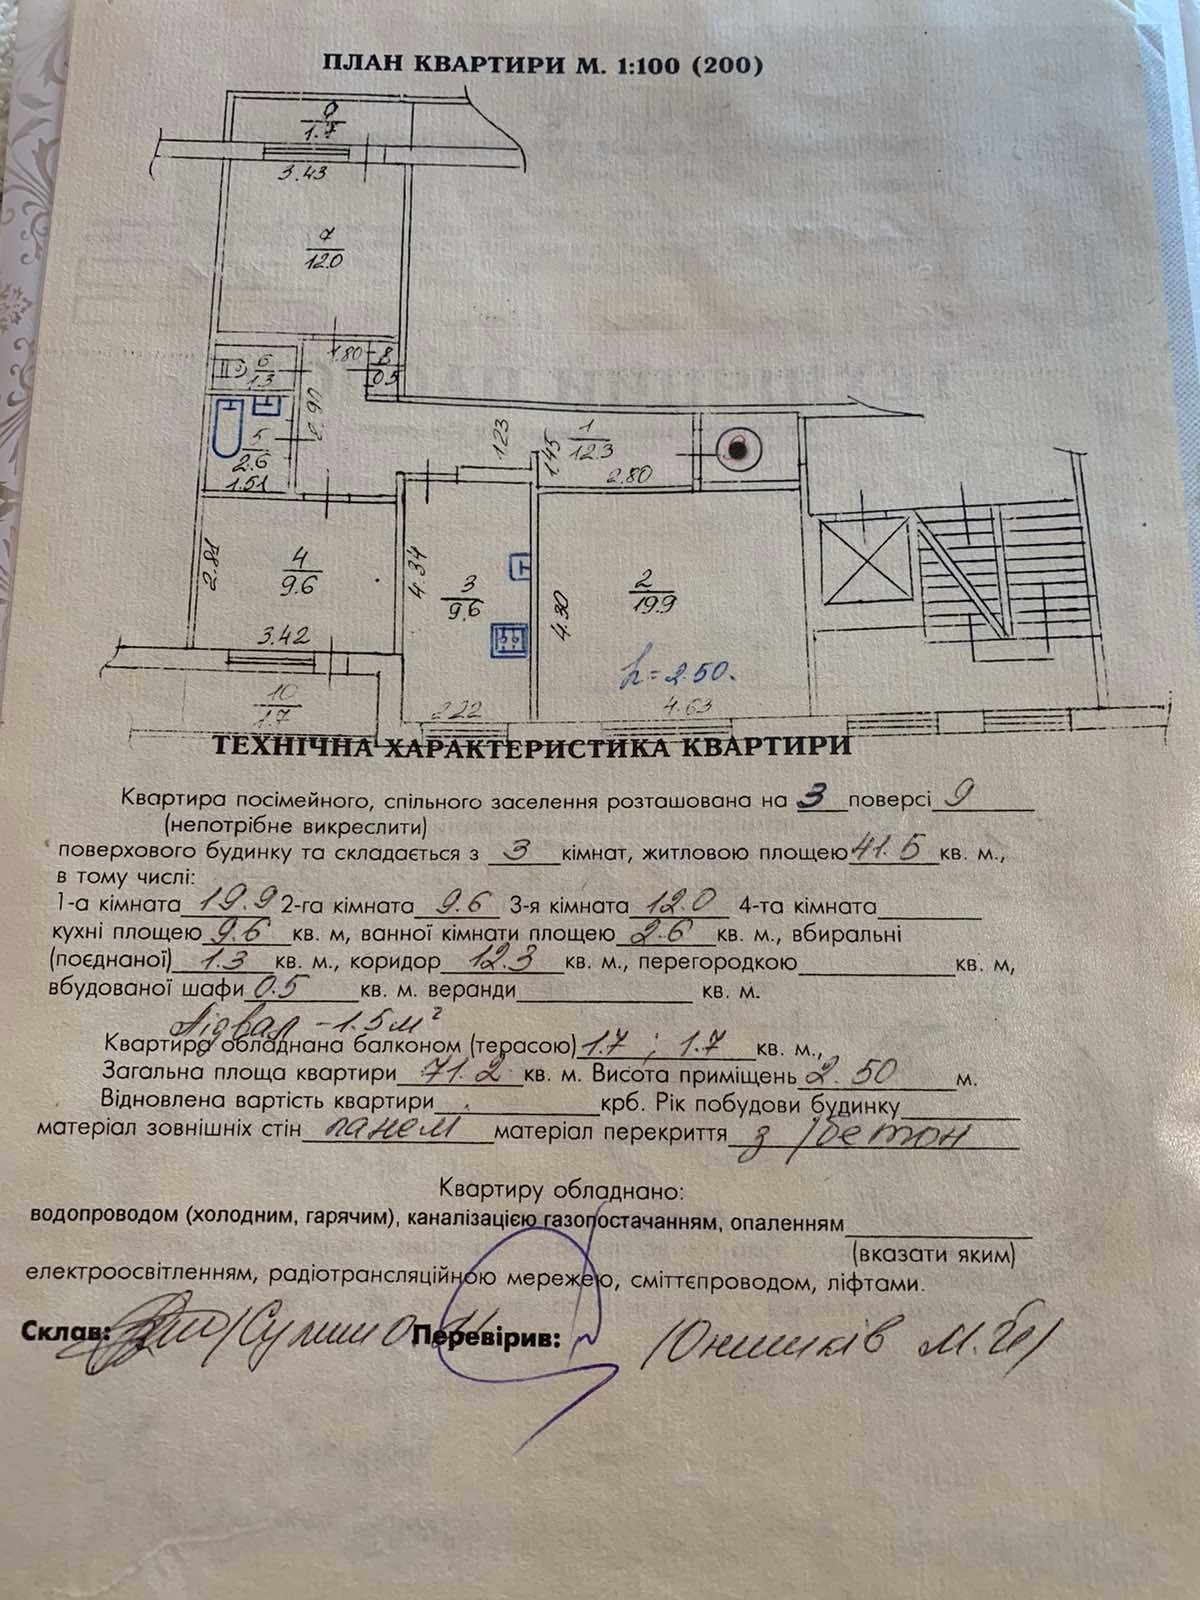 ПЛАН КВАРТИРИ М. 1:100 (200)
9
1.7
3.43
7
12.0
1.80
8
0.5
6
1.3
2.90
5
2.6
1.51
1.23
1.45
1
12.3
2.80
2.81
4
9.6
3.42
4.34
3
9.6
4.30
2
19.9
h = 2.50.
10
1.7
2.22
4.63
ТЕХНІЧНА ХАРАКТЕРИСТИКА КВАРТИРИ
Квартира посімейного, спільного заселення розташована на 3 поверсі 9
(непотрібне викреслити)
поверхового будинку та складається з 3 кімнат, житловою площею 41.5 кв. м.,
в тому числі:
1-а кімната 19.9 2-га кімната 9.6 3-я кімната 12.0 4-та кімната
кухні площею 9.6 кв. м, ванної кімнати площею 2.6 кв. м., вбиральні
(поєднаної) 1.3 кв. м., коридор 12.3 кв. м., перегородкою кв. м,
вбудованої шафи 0.5 кв. м. веранди кв. м.
Підвал - 1.5 м²
Квартира обладнана балконом (терасою) 1.7 ; 1.7 кв. м.,
Загальна площа квартири 71.2 кв. м. Висота приміщень 2.50 м.
Відновлена вартість квартири крб. Рік побудови будинку
матеріал зовнішніх стін панелі матеріал перекриття з/бетон
Квартиру обладнано:
водопроводом (холодним, гарячим), каналізацією газопостачанням, опаленням
(вказати яким)
електроосвітленням, радіотрансляційною мережею, сміттєпроводом, ліфтами.
Склав: Перевірив: